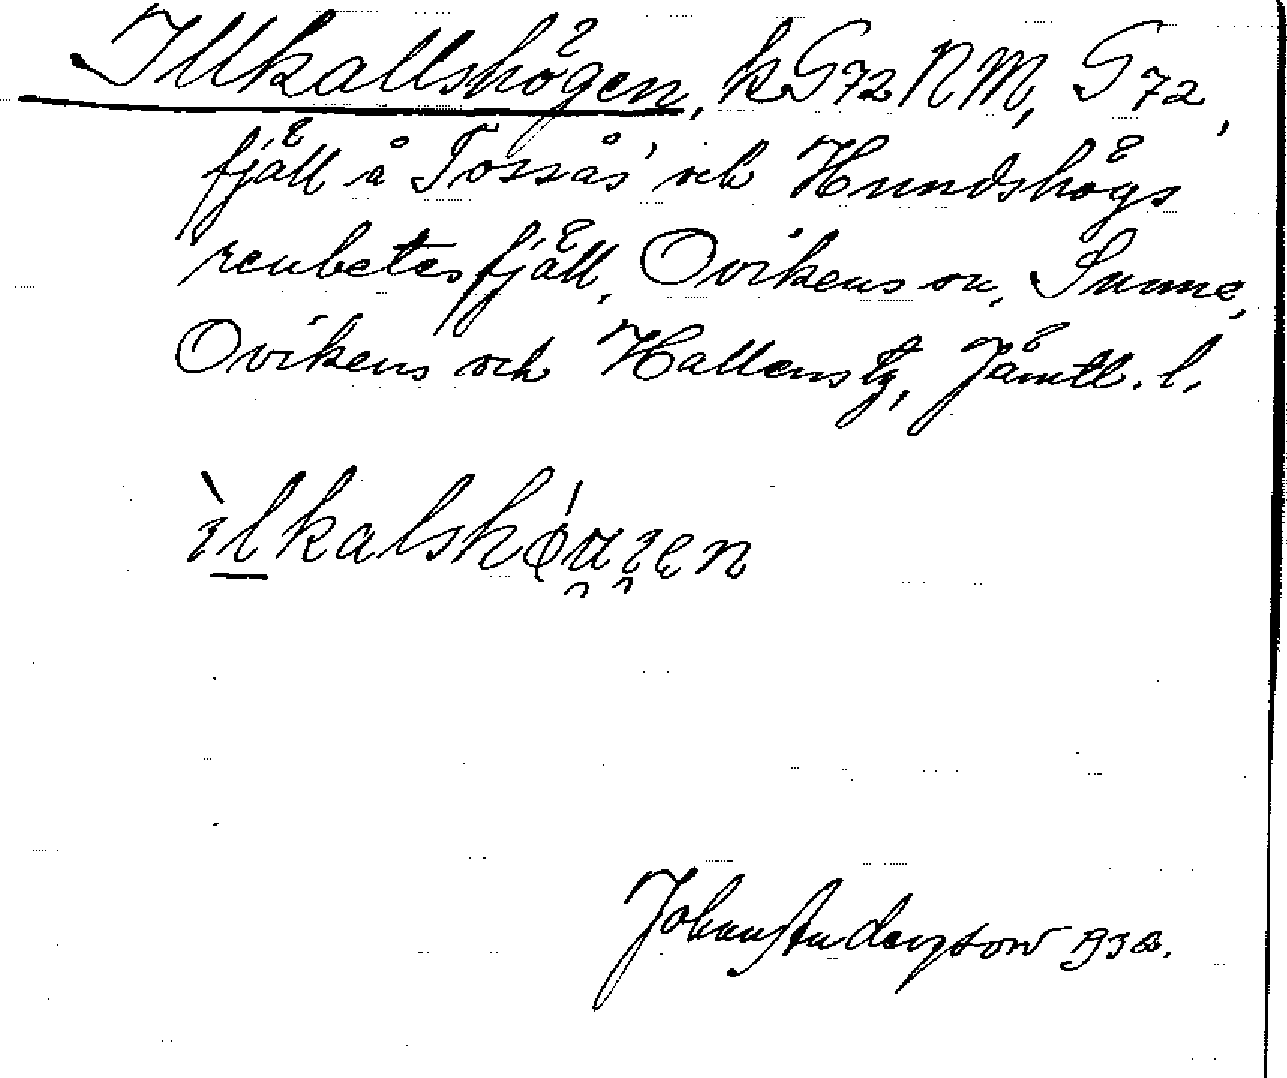 Illkallshögen, k G72 NM, G 72,
fjäll å Tossås' och Hundshögs
renbetesfjäll, Ovikens sn, Sunne,
Ovikens och Hallens tg, Jämtl. l.
ìlkalshǿgen
Johan Anderzson 1932.